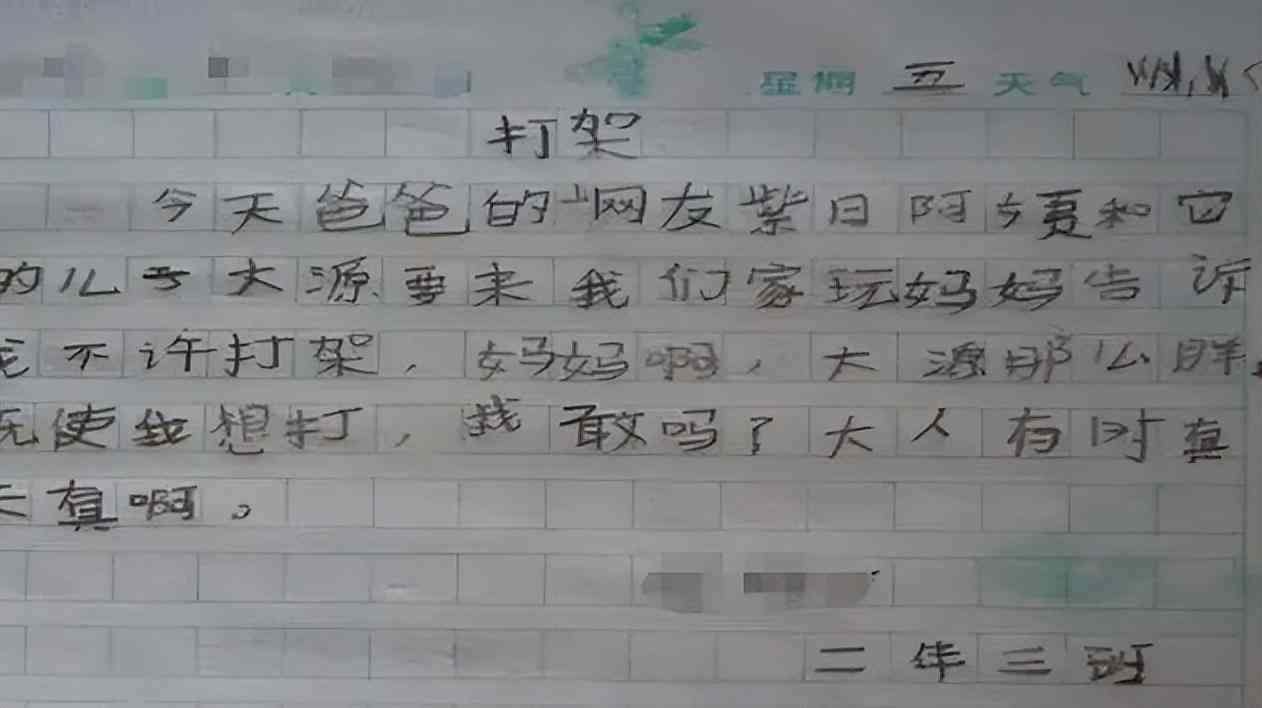 星期 五 天气
打架
今天爸爸的网友紫日阿姨和它
的儿子大源要来我们家玩妈妈告诉
我不许打架，妈妈啊，大源那么胖，
使我想打，我敢吗？大人有时真
天真啊。
二年三班